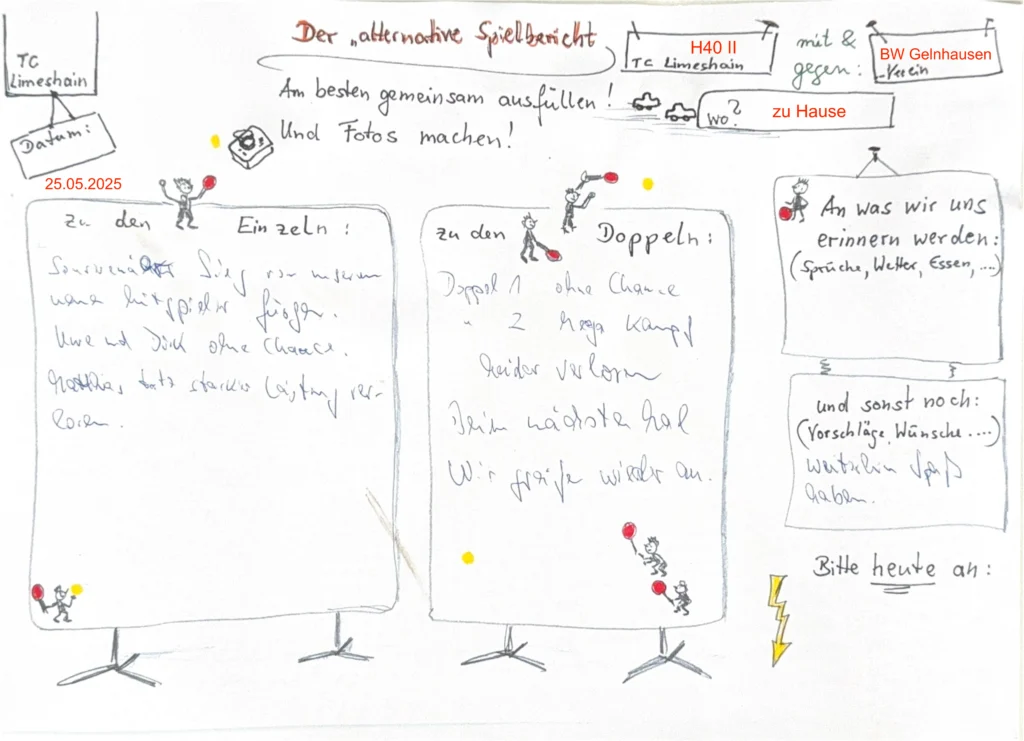 Der „alternative Spielbericht
TC
Limeshain
H40 II
TC Limeshain
mit &
gegen:
BW Gelnhausen
Verein
Am besten gemeinsam ausfüllen!
Und Fotos machen!
wo?
zu Hause
Datum:
25.05.2025
zu den Einzeln:
Sieg von unserem
neuen Mitspieler Jürgen.
Uwe und Dirk ohne Chance.
Matthias trotz starker Leistung ver-
loren.
zu den Doppeln:
Doppel 1 ohne Chance
" 2 Mega Kampf
leider verloren
Beim nächsten Mal
Wir greifen wieder an.
An was wir uns
erinnern werden:
(Sprüche, Wetter, Essen, ....)
und sonst noch:
(Vorschläge, Wünsche ....)
weiterhin Spaß
haben.
Bitte heute an: